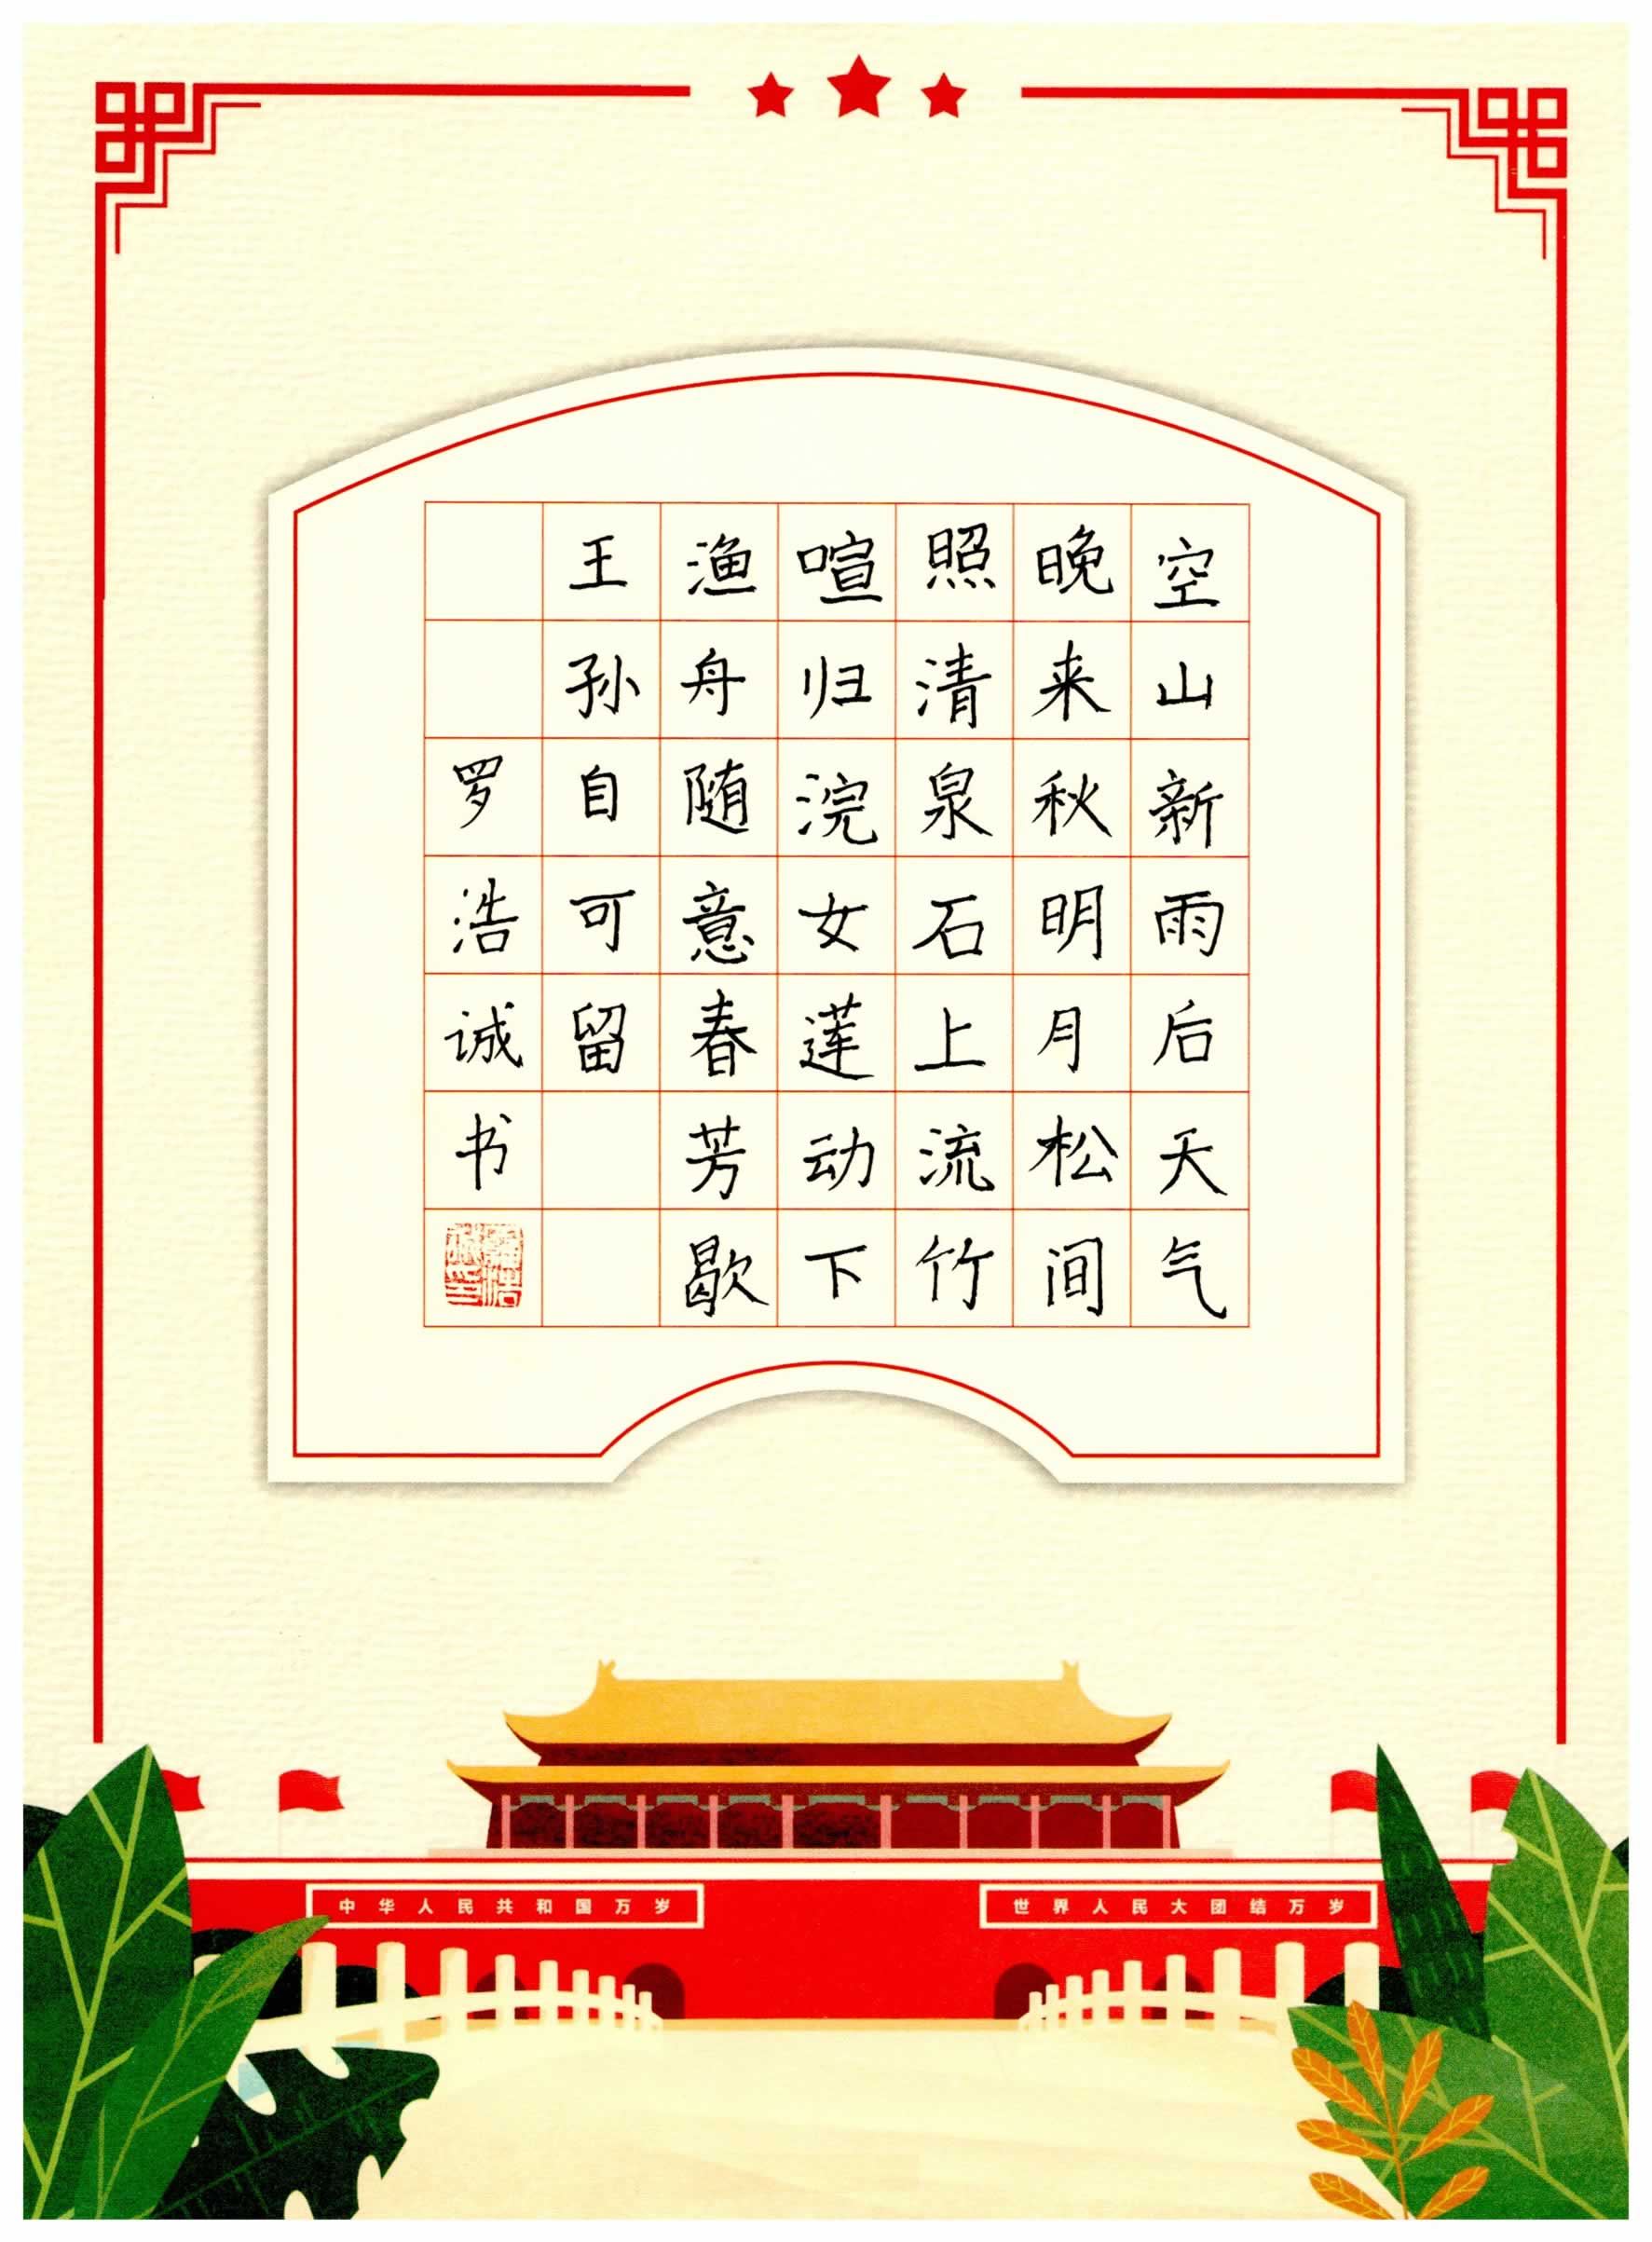 空山新雨后天气
晚来秋明月松间
照清泉石上流竹
喧归浣女莲动下
渔舟随意春芳歇
王孙自可留
罗浩诚书
中华人民共和国万岁
世界人民大团结万岁